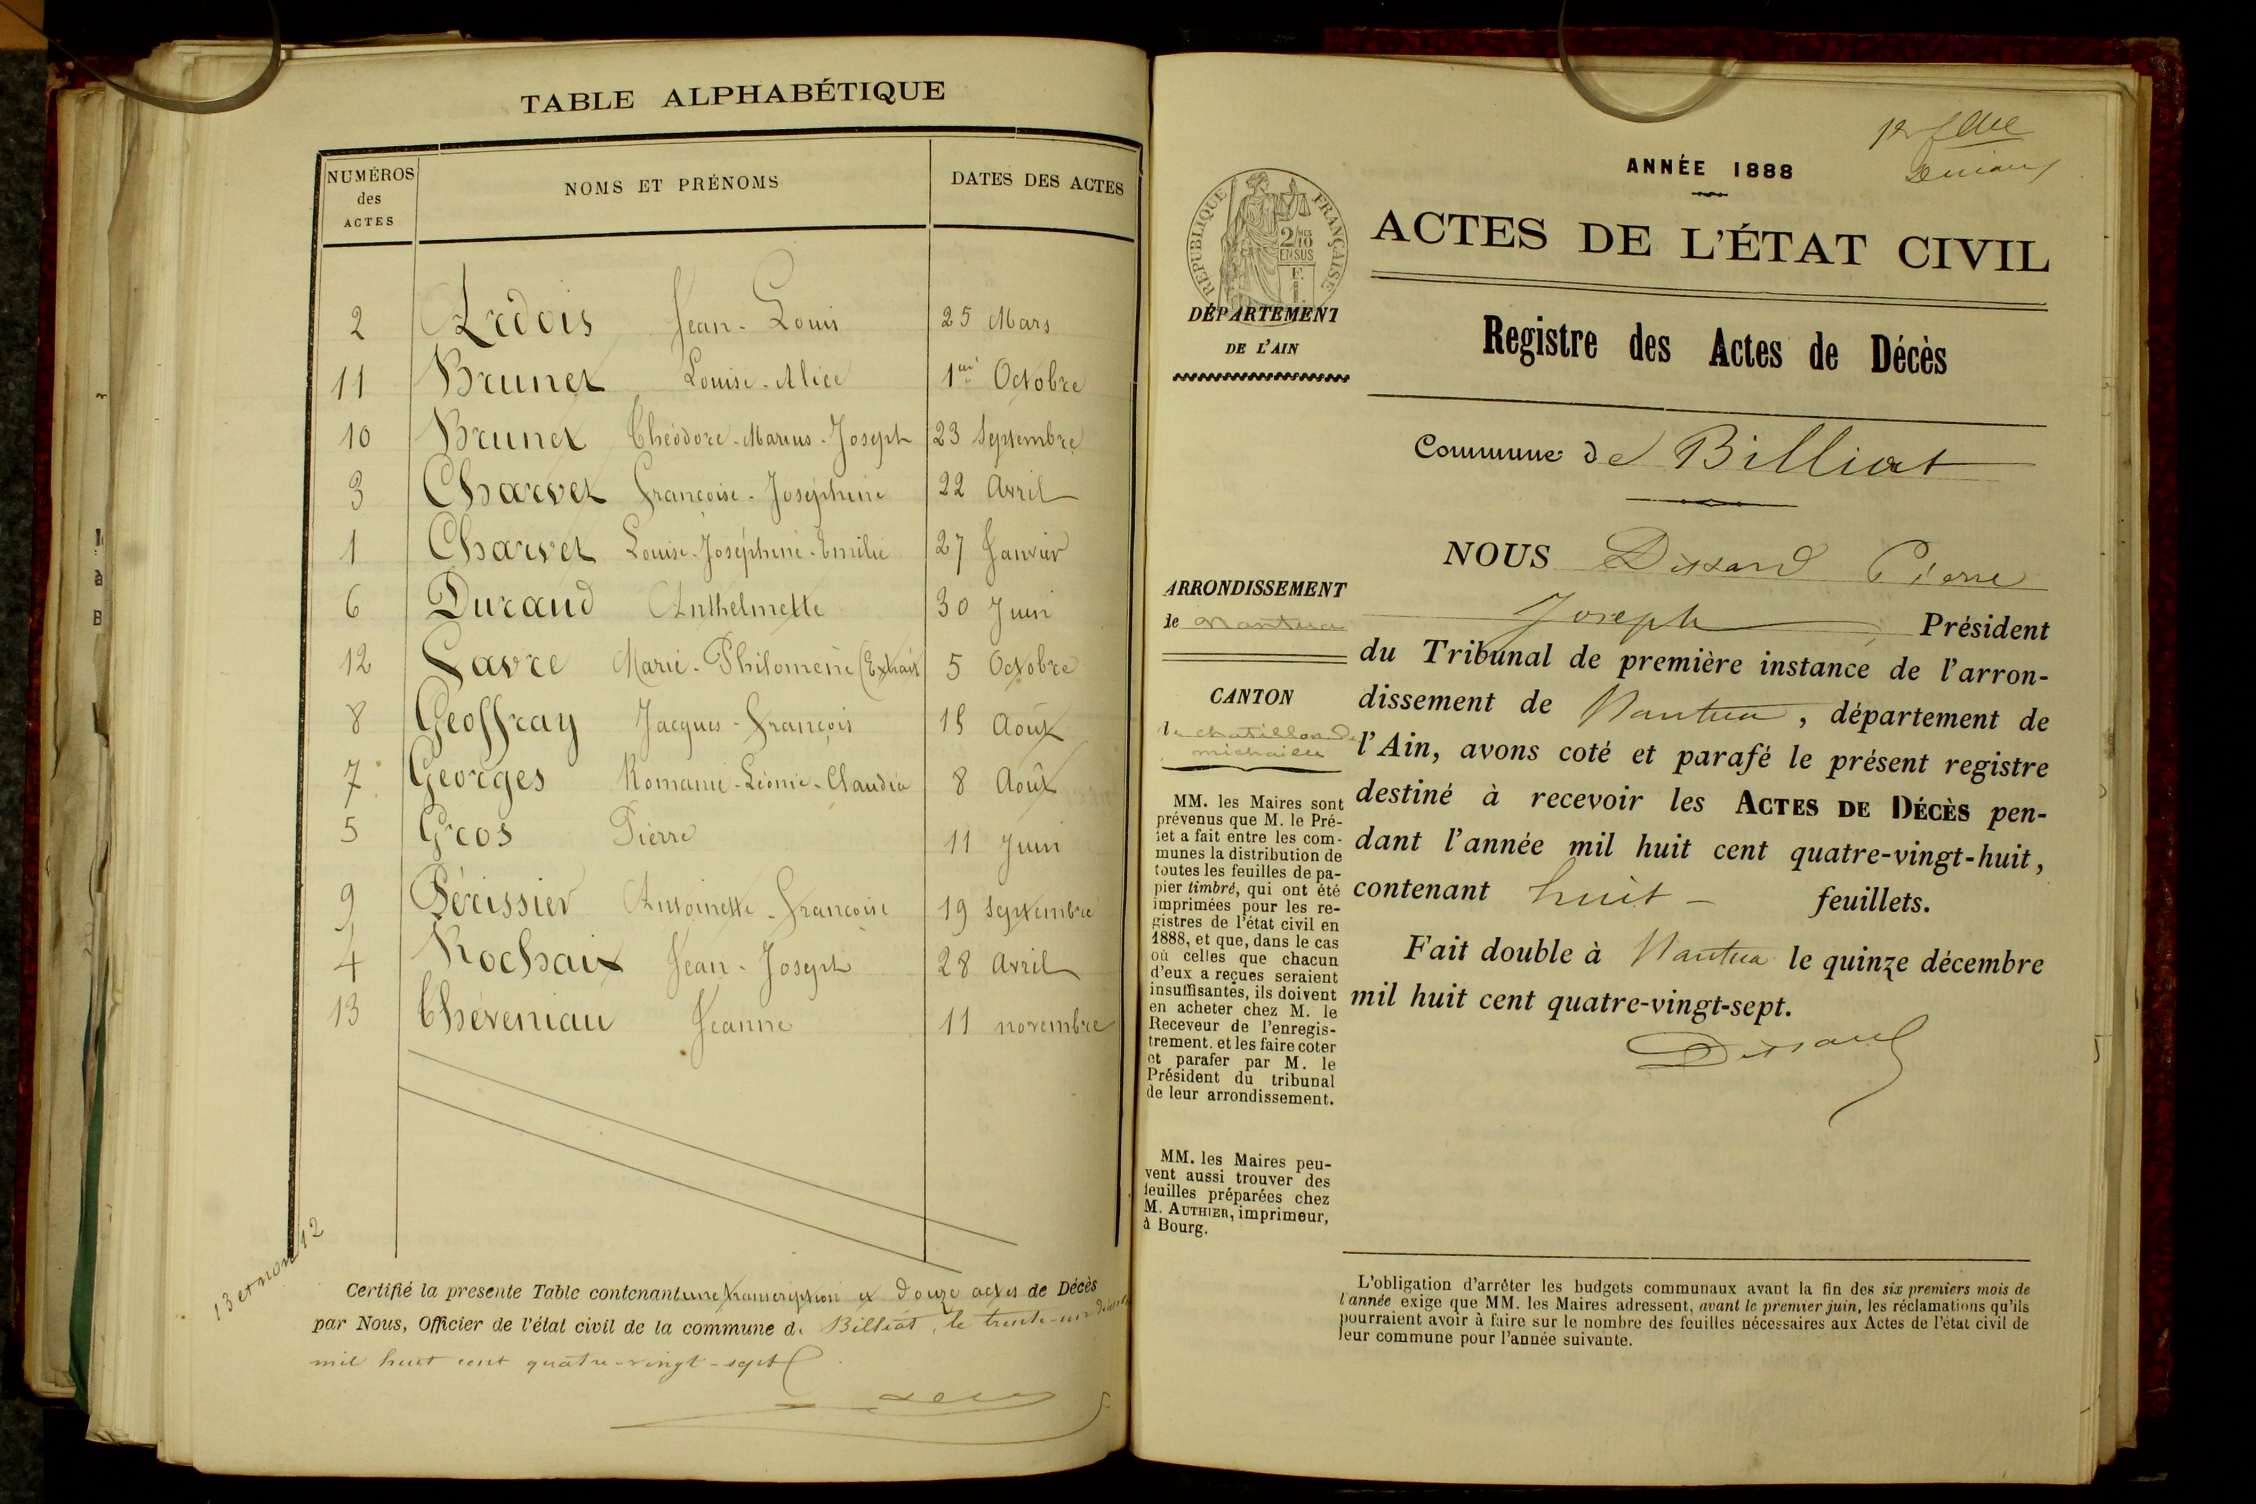 TABLE ALPHABÉTIQUE
NUMÉROS des ACTES
NOMS ET PRÉNOMS
DATES DES ACTES
2 Ardois Jean-Louis 25 Mars
11 Brunet Louise-Alice 1er Octobre
10 Brunet Théodore-Marius-Joseph 23 Septembre
3 Charvet Françoise-Joséphine 22 Avril
1 Charvet Louise-Joséphine-Emilie 27 Janvier
6 Durand Anthelmette 30 Juin
12 Favre Marie-Philomène (Extrait 5 Octobre
8 Geoffray Jacques-François 15 Août
7 Georges Romanie-Léonie-Claudia 8 Août
5 Gros Pierre 11 Juin
9 Périssier Antoinette-Françoise 19 Septembre
4 Rochaix Jean-Joseph 28 Avril
13 Théveniau Jeanne 11 novembre
13 et non 12
Certifié la presente Table contenant une transcription et douze actes de Décès
par Nous, Officier de l'état civil de la commune de Billiat, le trente-un
mil huit cent quatre-vingt-sept
ANNÉE 1888
RÉPUBLIQUE FRANÇAISE
2/10 EN SUS
ACTES DE L'ÉTAT CIVIL
DÉPARTEMENT
DE L'AIN
Registre des Actes de Décès
Commune de Billiat
ARRONDISSEMENT
de Nantua
CANTON
de chatillon de
michaille
NOUS Dissard Pierre
Joseph, Président
du Tribunal de première instance de l'arron-
dissement de Nantua, département de
l'Ain, avons coté et parafé le présent registre
destiné à recevoir les ACTES DE DÉCÈS pen-
dant l'année mil huit cent quatre-vingt-huit,
contenant huit - feuillets.
Fait double à Nantua le quinze décembre
mil huit cent quatre-vingt-sept.
Dissard
MM. les Maires sont
prévenus que M. le Pré-
fet a fait entre les com-
munes la distribution de
toutes les feuilles de pa-
pier timbré, qui ont été
imprimées pour les re-
gistres de l'état civil en
1888, et que, dans le cas
où celles que chacun
d'eux a reçues seraient
insuffisantes, ils doivent
en acheter chez M. le
Receveur de l'enregis-
trement. et les faire coter
et parafer par M. le
Président du tribunal
de leur arrondissement.
MM. les Maires peu-
vent aussi trouver des
feuilles préparées chez
M. AUTHIER, imprimeur,
à Bourg.
L'obligation d'arrêter les budgets communaux avant la fin des six premiers mois de
l'année exige que MM. les Maires adressent, avant le premier juin, les réclamations qu'ils
pourraient avoir à faire sur le nombre des feuilles nécessaires aux Actes de l'état civil de
leur commune pour l'année suivante.